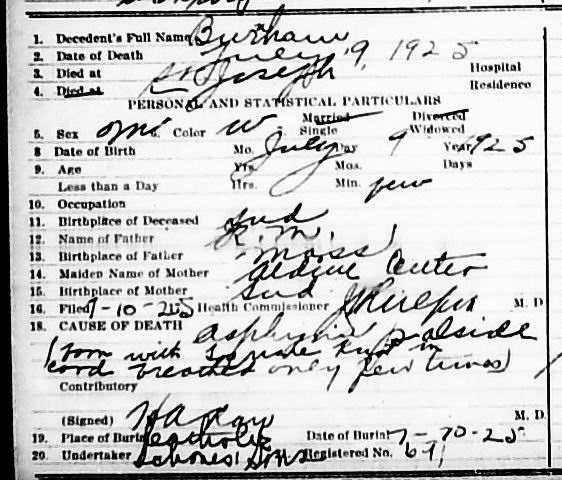 1. Decedent's Full Name Burham
2. Date of Death July 9, 1925
3. Died at St Joseph Hospital
4. Died at Residence
PERSONAL AND STATISTICAL PARTICULARS
5. Sex m 6. Color W 7. Married Single Divorced Widowed
8 Date of Birth Mo. July Day 9 Year 1925
9. Age Yrs. Mos. Days
Less than a Day Hrs. Min. few
10. Occupation
11. Birthplace of Deceased Ind
12. Name of Father R. M.
13. Birthplace of Father Mass
14. Maiden Name of Mother Center
15. Birthplace of Mother Ind
16. Filed 7-10-25 Health Commissioner M. D
18. CAUSE OF DEATH asphyxia
(born with Square Knot in
cord breathed only few times)
Contributory
(Signed) M. D.
19. Place of Burial Catholic Date of Burial 7-10-25
20. Undertaker Sons Registered No.